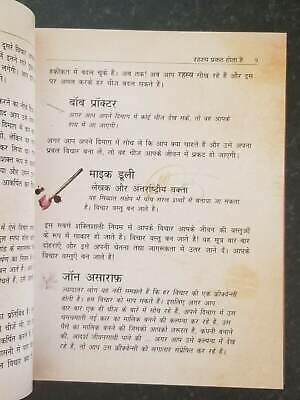 रहस्य प्रकट होता है 9
हक़ीक़त में बदल चुके हैं। अब तक! अब आप रहस्य सीख रहे हैं और इस
पर अमल करके हर चीज़ बदल सकते हैं।
बॉब प्रॉक्टर
अगर आप अपने दिमाग़ में कोई चीज़ देख सकें, तो वह आपके
हाथ में आ जाएगी।
अगर आप अपने दिमाग़ में सोच लें कि आप क्या चाहते हैं और उसे अपना
प्रबल विचार बना लें, तो वह चीज़ आपके जीवन में प्रकट हो जाएगी।
माइक डूली
लेखक और अंतर्राष्ट्रीय वक्ता
यह सिद्धांत संक्षेप में पाँच सरल शब्दों में बताया जा सकता
है। विचार वस्तु बन जाते हैं!
इस सबसे शक्तिशाली नियम में आपके विचार आपके जीवन की वस्तुओं
के रूप में साकार हो जाते हैं। विचार वस्तु बन जाते हैं! यह सूत्र बार बार
दोहराएँ और इसे अपनी चेतना तथा जागरूकता में उतर जाने दें। आपके
विचार वस्तु बन जाते हैं!
जॉन असाराफ़
ज़्यादातर लोग यह नहीं समझते हैं कि हर विचार की एक फ़्रीक्वेन्सी
होती है। हम विचार को माप सकते हैं। इसलिए अगर आप
बार बार एक ही चीज़ के बारे में सोच रहे हैं, अपने दिमाग़ में उस
चमचमाती नई कार का मालिक बनने की कल्पना कर रहे हैं, उस
पैसे का मालिक बनने की जिसकी आपको ज़रूरत है, कंपनी बनाने
की, आदर्श जीवनसाथी पाने की ... अगर आप उसकी कल्पना में देख
रहे हैं, तो आप उस फ़्रीक्वेन्सी को लगातार संप्रेषित कर रहे हैं।